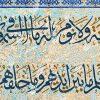 ولا نوم له ما في السمو
ما بين ايديهم وما خلفهم